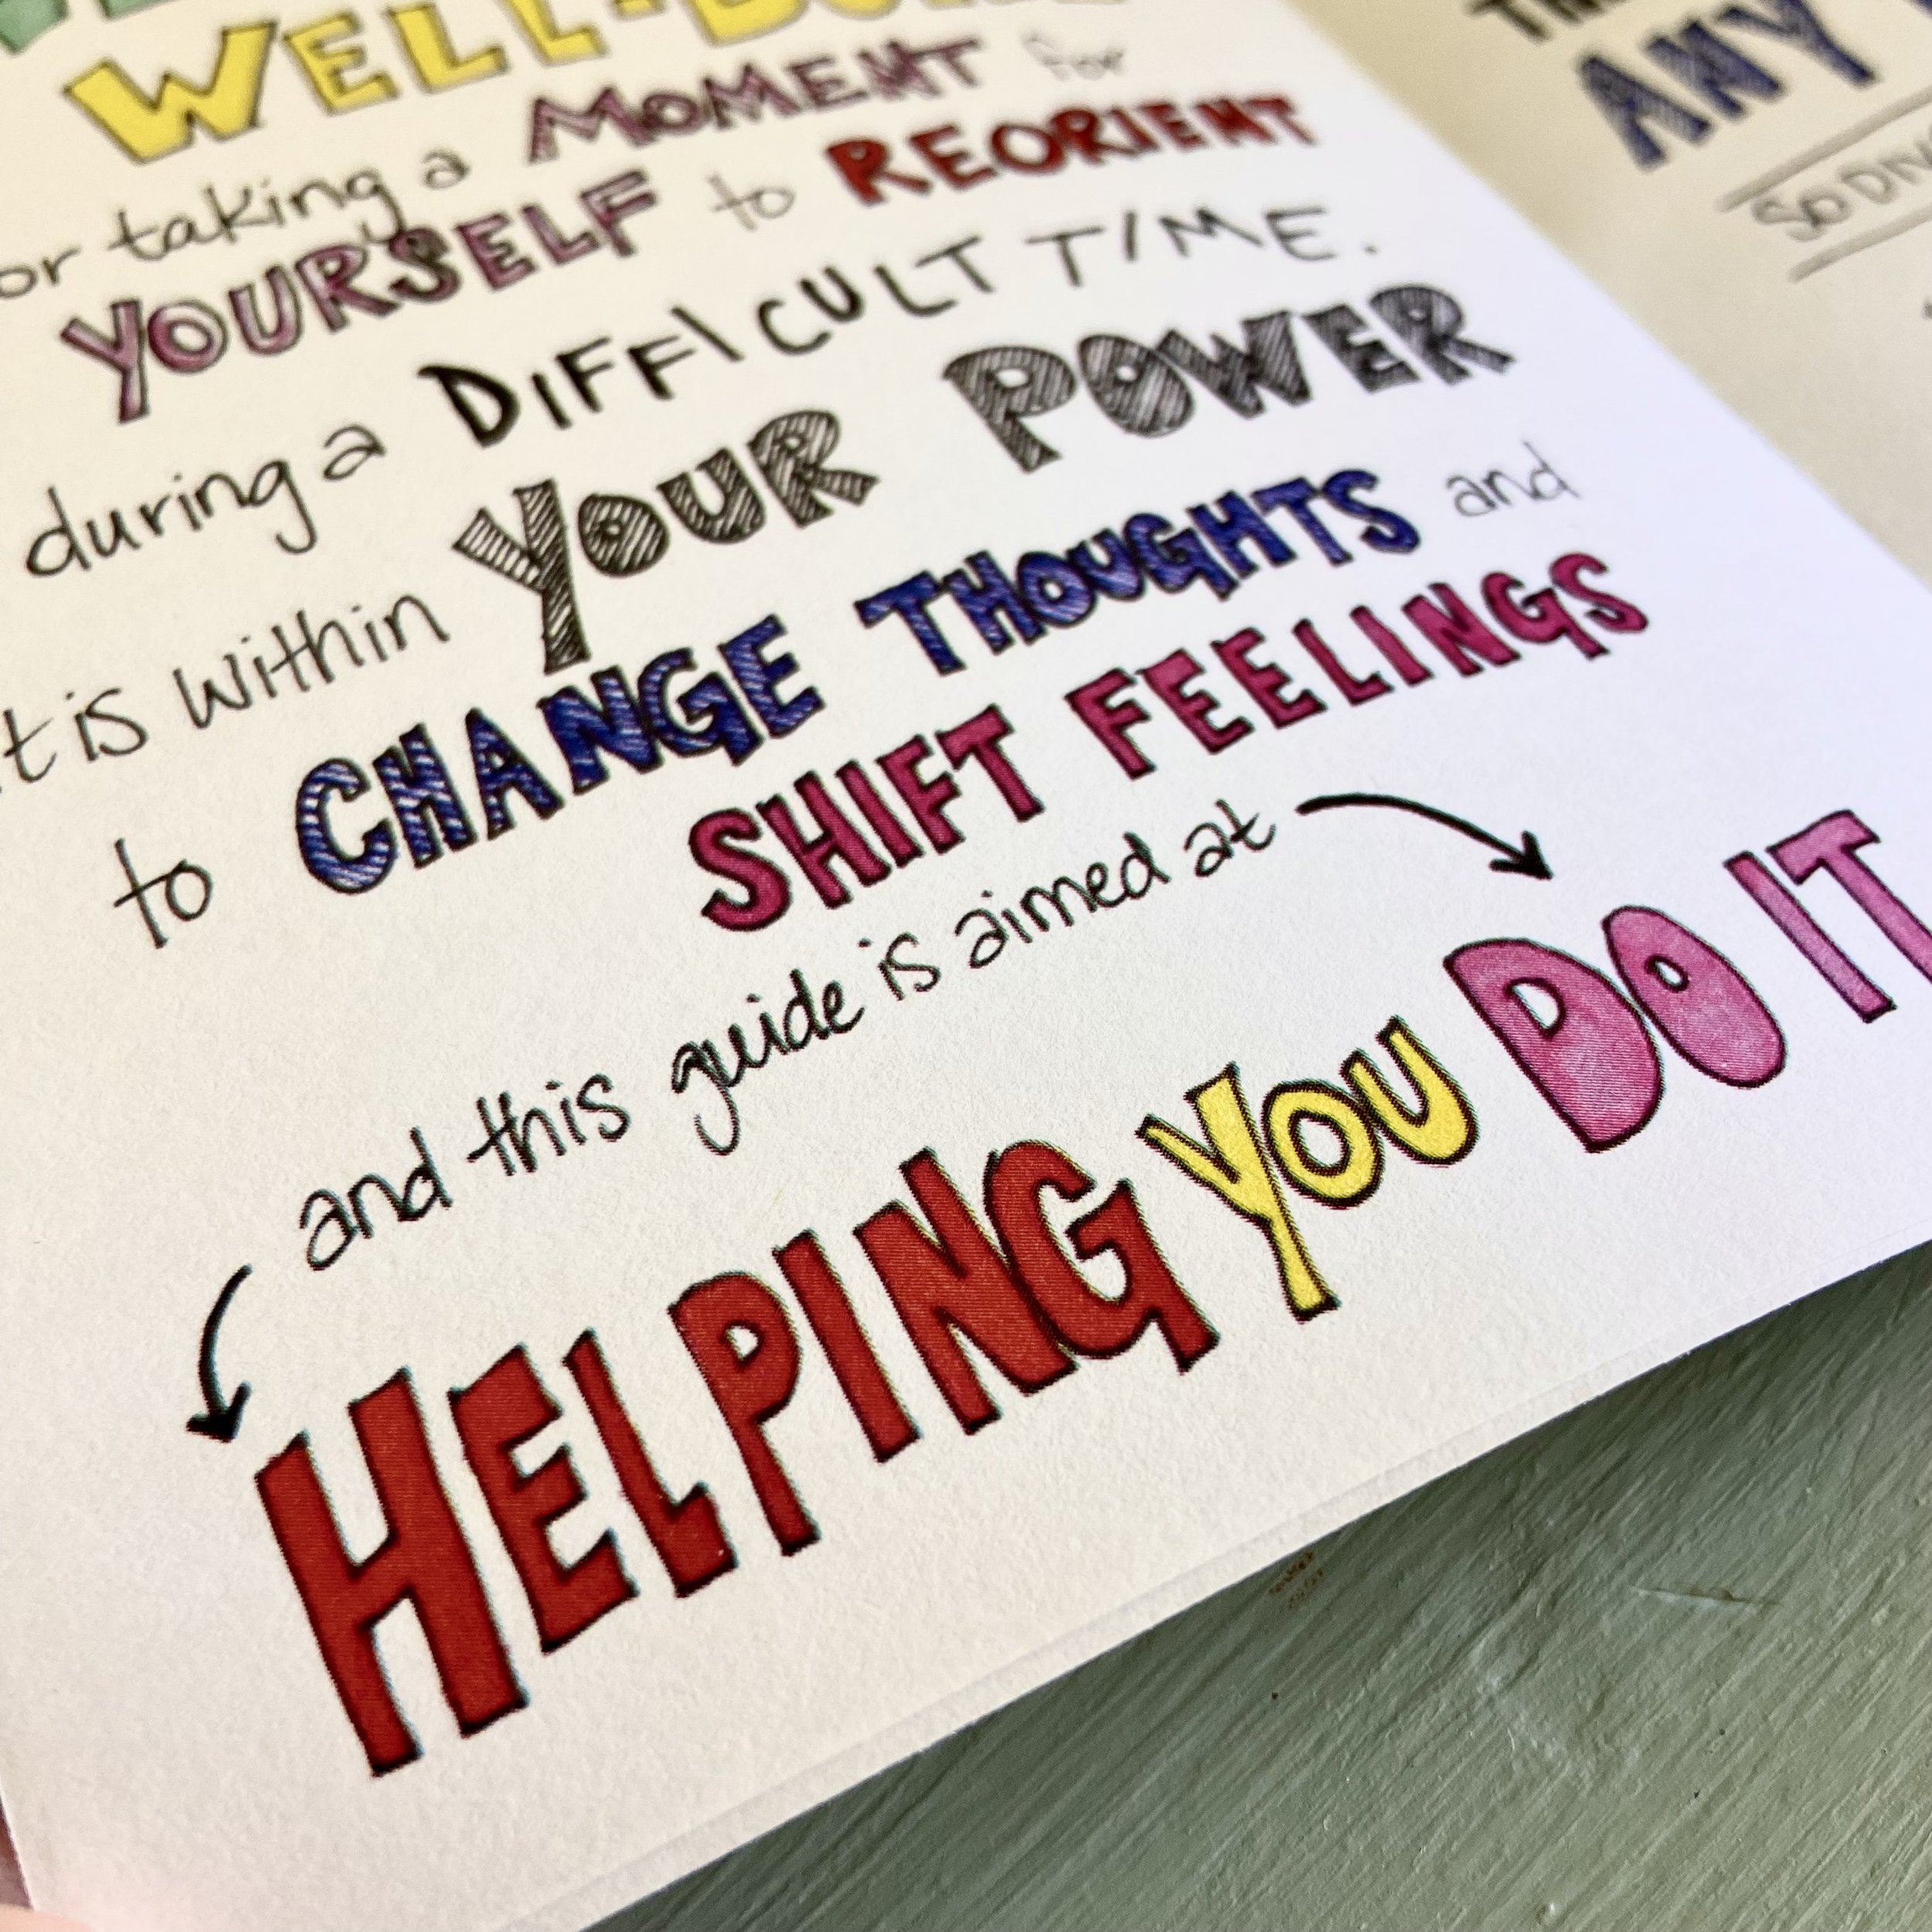 WELL-
or taking a MOMENT for
YOURSELF to REORIENT
during a DIFFICULT TIME.
t is within YOUR POWER
to CHANGE THOUGHTS and
SHIFT FEELINGS
and this guide is aimed at
HELPING YOU DO IT
ANY
SO DIV